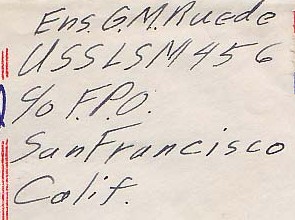 Ens. G.M. Ruede
USS LSM 456
c/o F.P.O.
San Francisco
Calif.